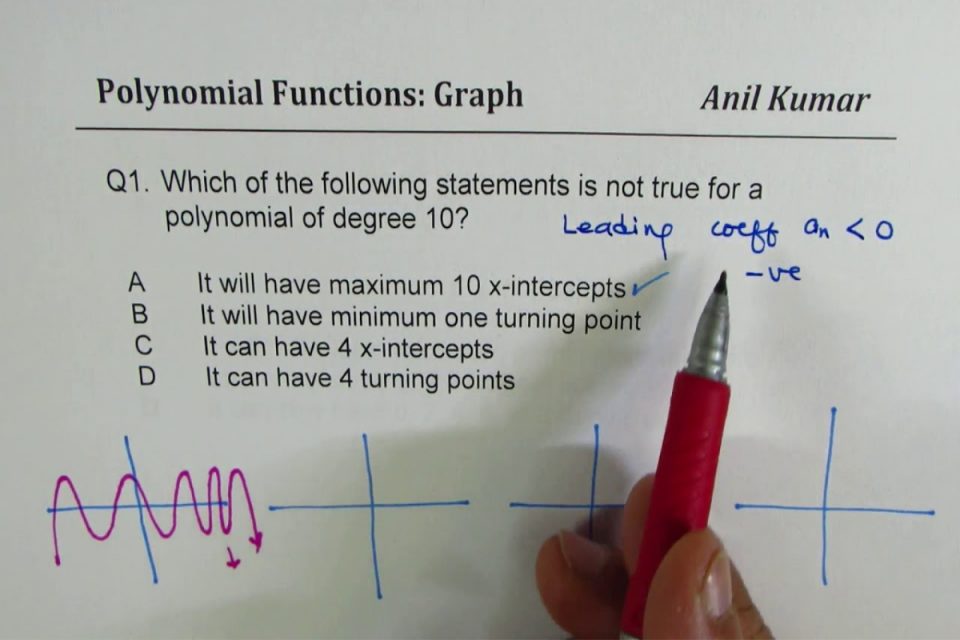 Polynomial Functions: Graph Anil Kumar
Q1. Which of the following statements is not true for a
polynomial of degree 10?
Leading coeff an < 0
-ve
A It will have maximum 10 x-intercepts ✓
B It will have minimum one turning point
C It can have 4 x-intercepts
D It can have 4 turning points